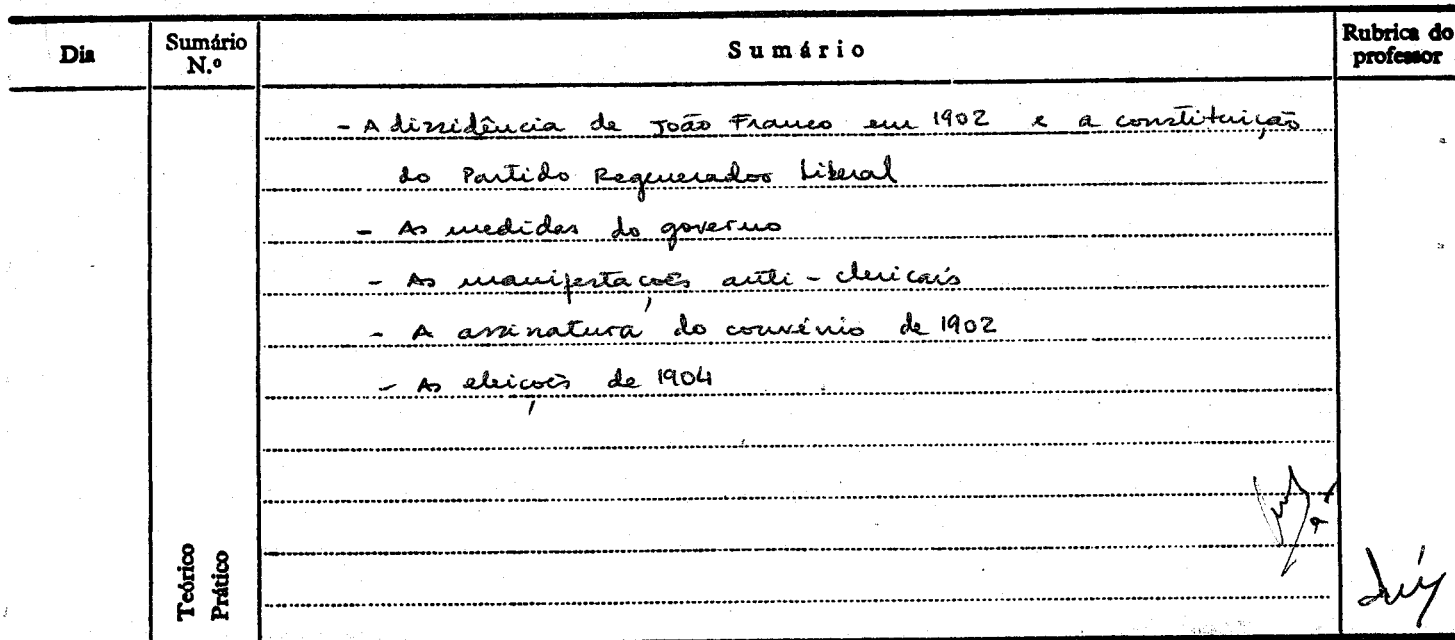 Dia
Sumário N.º
Sumário
Rubrica do professor
- A dissidência de João Franco em 1902 e a constituição
do Partido Regenerador Liberal
- As medidas do governo
- As manifestações anti-clericais
- A assinatura do convénio de 1902
- As eleições de 1904
Teórico
Prático